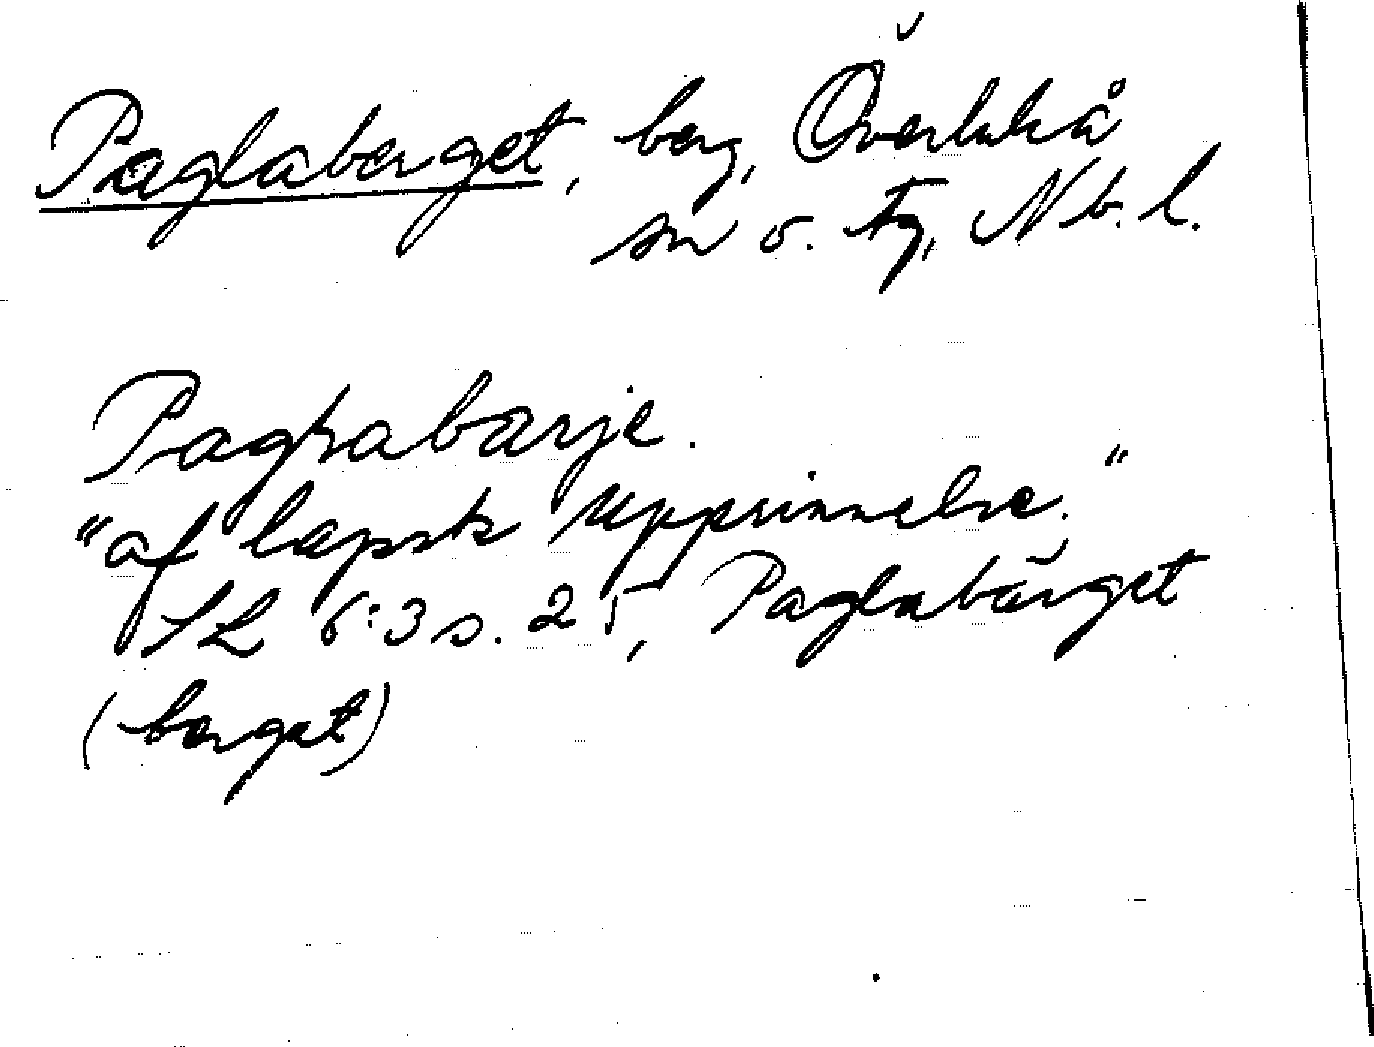 Paglaberget, berg, Överluleå
sn o. tg, Nb. l.
Pagkabärje.
"af lapsk upprinnelse."
SL 6:3 s. 25, Paglabärget
(berget)